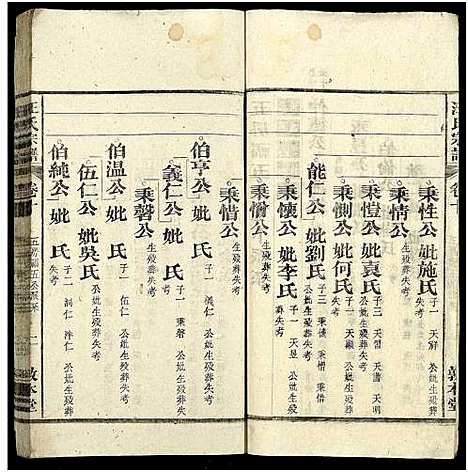 汪氏宗譜
卷十
敦本堂
秉性公妣施氏 子一 天爵 公妣生歿葬失考
秉情公 生歿葬失考
秉愷公妣袁氏 子三 天習 天晝 天明 公妣生歿葬失考
秉惻公妣何氏 公妣生歿葬失考
能仁公妣劉氏 子三 秉懷 秉情 秉惜 公妣生歿葬失考
秉懷公妣李氏 子一 天昱 公妣生歿葬失考
秉惜公 生歿葬失考
秉情公 生歿葬失考
伯亨公妣氏 子一 義仁 公妣生歿葬失考
義仁公妣氏 子一 秉磬 公妣生歿葬失考
秉磬公 生歿葬失考
伯溫公妣氏 子一 伍仁 公妣生歿葬失考
伍仁公妣吳氏 公妣生歿葬失考
伯純公妣氏 子二 洞仁 泮仁 公妣生歿葬失考
汪氏宗譜
卷十
敦本堂